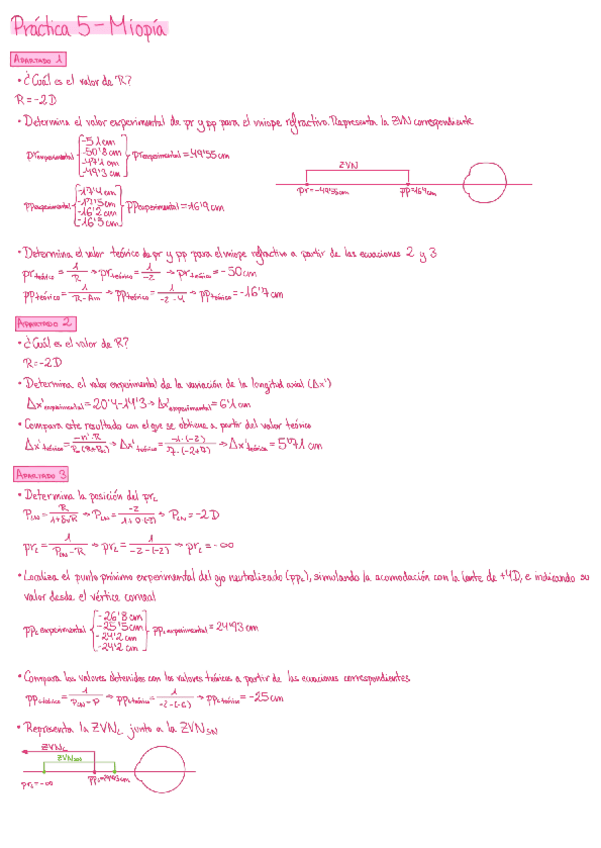 Práctica 5 - Miopía
APARTADO 1
• ¿Cuál es el valor de R?
R = -2D
• Determina el valor experimental de pr y pp para el miope refractivo. Representa la ZVN correspondiente
pr experimental { -51cm -50'8cm -47'1cm -49'3cm } pr experimental = 49'55cm
ZVN
pr = -49'55cm pp=16'9cm
pp experimental { -17'4cm -17'5cm -16'2cm -16'3cm } pp experimental = 16'9cm
• Determina el valor teórico de pr y pp para el miope refractivo a partir de las ecuaciones 2 y 3
pr teórico = 1/R → pr teórico = 1/-2 → pr teórico = -50cm
pp teórico = 1/R-Am → pp teórico = 1/-2-4 → pp teórico = -16'7cm
APARTADO 2
• ¿Cuál es el valor de R?
R = -2D
• Determina el valor experimental de la variación de la longitud axial (Δx')
Δx' experimental = 20'4 - 14'3 → Δx' experimental = 6'1cm
• Compara este resultado con el que se obtiene a partir del valor teórico
Δx' teórico = → Δx' teórico = → Δx' teórico = 5'71cm
APARTADO 3
• Determina la posición del prL
PLN = R/1+δvR → PLN = -2/1+0·(-2) → PLN = -2D
prL = 1/PLN-R → prL = 1/-2-(-2) → prL = -∞
• Localiza el punto próximo experimental del ojo neutralizado (ppL), simulando la acomodación con la lente de +4D, e indicando su
valor desde el vértice corneal
ppL experimental { -26'8cm -25'5cm -24'2cm -24'2cm } ppL experimental = 24'93cm
• Compara los valores obtenidos con los valores teóricos a partir de las ecuaciones correspondientes
ppL teórico = 1/PLN-P → ppL teórico = 1/-2-(-6) → ppL teórico = -25cm
• Representa la ZVNL junto a la ZVNSN
ZVNL
ZVNSN
prL = -∞ ppL=24'93cm